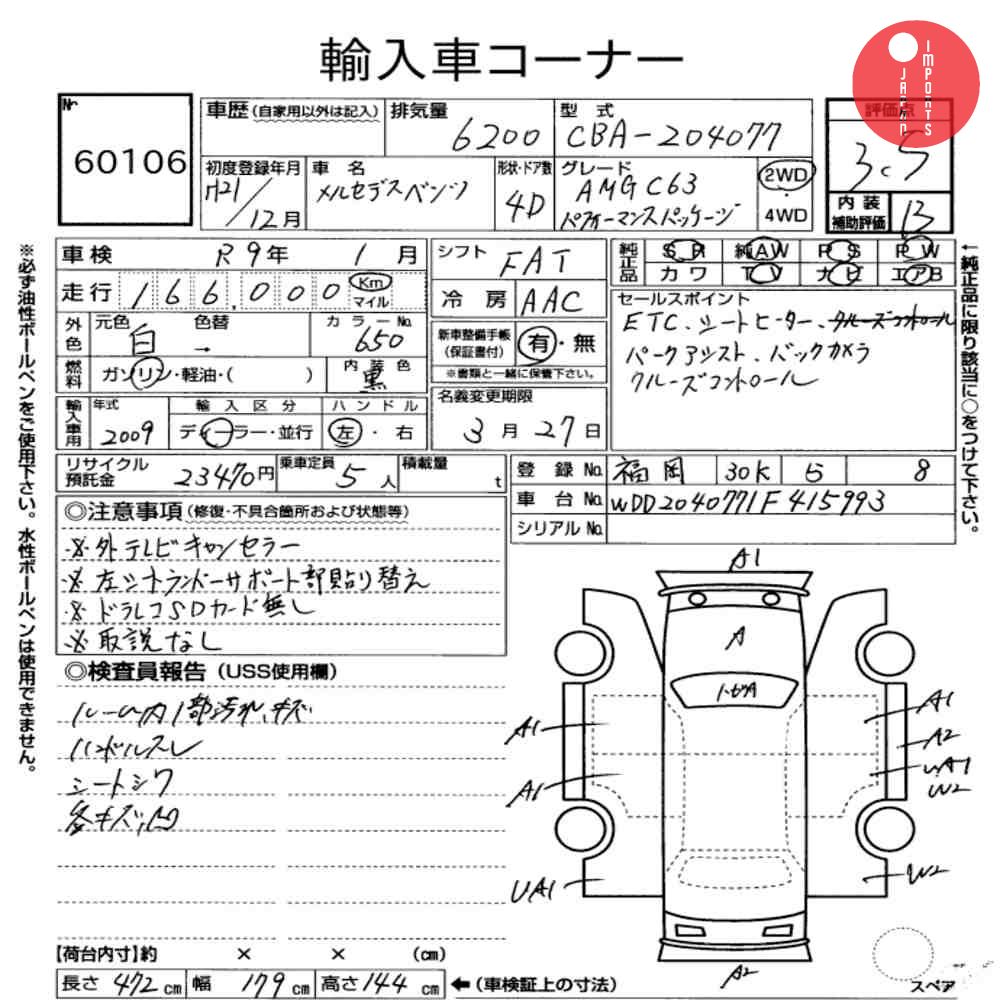 輸入車コーナー
JAPAN IMPORTS
№ 60106
車歴 (自家用以外は記入)
排気量 6200
型式 CBA-204077
評価点 3.5
初度登録年月 H21/12月
車名 メルセデスベンツ
形状・ドア数 4D
グレード AMG C63 パフォーマンスパッケージ
2WD
4WD
内装補助評価 B
車検 R9年 1月
シフト FAT
純正品 SR 純AW PS PW
カワ TV ナビ エアB
走行 166,000 Km マイル
冷房 AAC
セールスポイント
ETC、シートヒーター、クルーズコントロール
パークアシスト、バックカメラ
クルーズコントロール
外色 元色 白 色替 → カラーNo. 650
新車整備手帳(保証書付) 有・無
※書類と一緒に保管下さい。
燃料 ガソリン・軽油・( )
内装色 黒
名義変更期限 3月27日
輸入車用 年式 2009
輸入区分 ディーラー・並行
ハンドル 左・右
リサイクル預託金 23470円
乗車定員 5人
積載量 t
登録No. 福岡 30K 5 8
車台No. WDD2040771F415993
シリアルNo.
◎注意事項(修復・不具合箇所および状態等)
※外テレビキャンセラー
※左シートランバーサポート部貼り替え
※ドラレコSDカード無し
※取説なし
◎検査員報告 (USS使用欄)
ルーム内1部汚れ、キズ
ハンドルスレ
シートシワ
各キズ,凹
A1
A
トビA
A1
A1
UA1
A1
A2
UA1
W2
W2
A2
スペア
【荷台内寸】約 × × (cm)
長さ 472cm 幅 179cm 高さ 144cm ←(車検証上の寸法)
※必ず油性ボールペンをご使用下さい。水性ボールペンは使用できません。
←純正品に限り該当に○をつけて下さい。